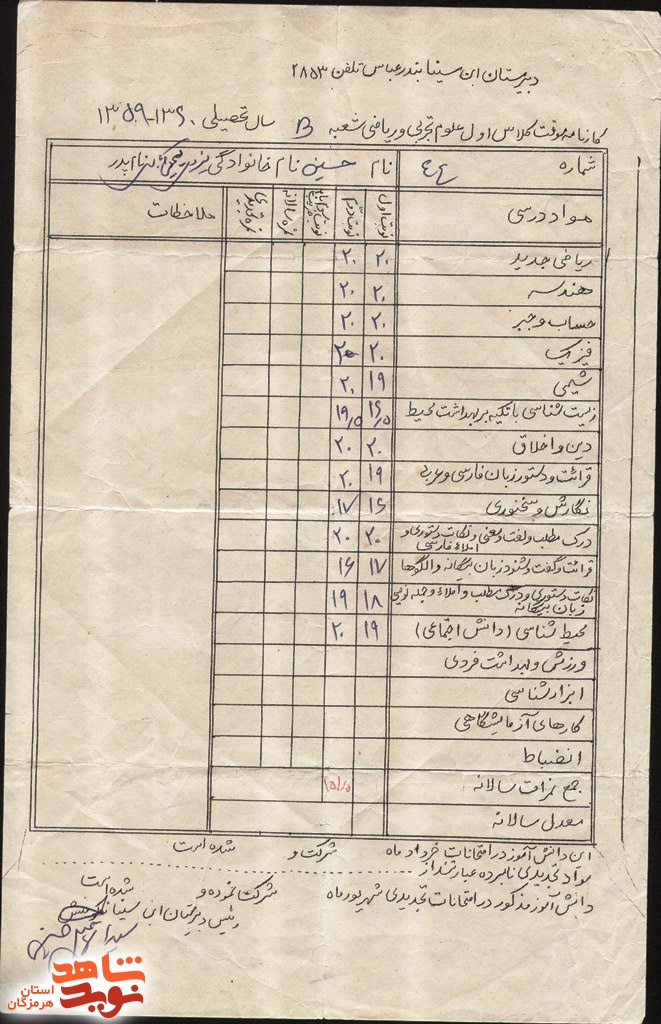 دبیرستان ابن سینا بندرعباس تلفن ۲۸۵۳
کارنامه موقت کلاس اول علوم تجربی و ریاضی شعبه B سال تحصیلی ۱۳۵۹-۱۳۶۰
شماره ۴۴ نام حسین نام خانوادگی نام پدر
مواد درسی نوبت اول نوبت دوم نمره سالانه نمره تجدیدی ملاحظات
ریاضی جدید ۲۰ ۲۰
هندسه ۲۰ ۲۰
حساب و جبر ۲۰ ۲۰
فیزیک ۲۰ ۲۰
شیمی ۱۹ ۲۰
زیست شناسی با تکیه بر بهداشت محیط ۱۶/۵ ۱۹/۵
دین و اخلاق ۲۰ ۲۰
قرائت و دستور زبان فارسی و عربی ۱۹ ۲۰
نگارش و سخنوری ۱۶ ۱۷
درک مطلب و لغت و معنی و نکات دستوری و املاء فارسی ۲۰ ۲۰
قرائت و گفت و شنود زبان بیگانه و الگوها ۱۷ ۱۶
نکات دستوری و درک مطلب و املاء و جمله نویسی زبان بیگانه ۱۸ ۱۹
محیط شناسی (دانش اجتماعی) ۱۹ ۲۰
ورزش و بهداشت فردی
ابزارشناسی
کارهای آزمایشگاهی
انضباط
جمع نمرات سالانه
معدل سالانه
این دانش آموز در امتحانات خرداد ماه شرکت و شده است
مواد تجدیدی نامبرده عبارتند از
دانش آموز مذکور در امتحانات تجدیدی شهریور ماه شرکت نموده و شده است
رئیس دبیرستان ابن سینا
نوید شاهد
استان هرمزگان